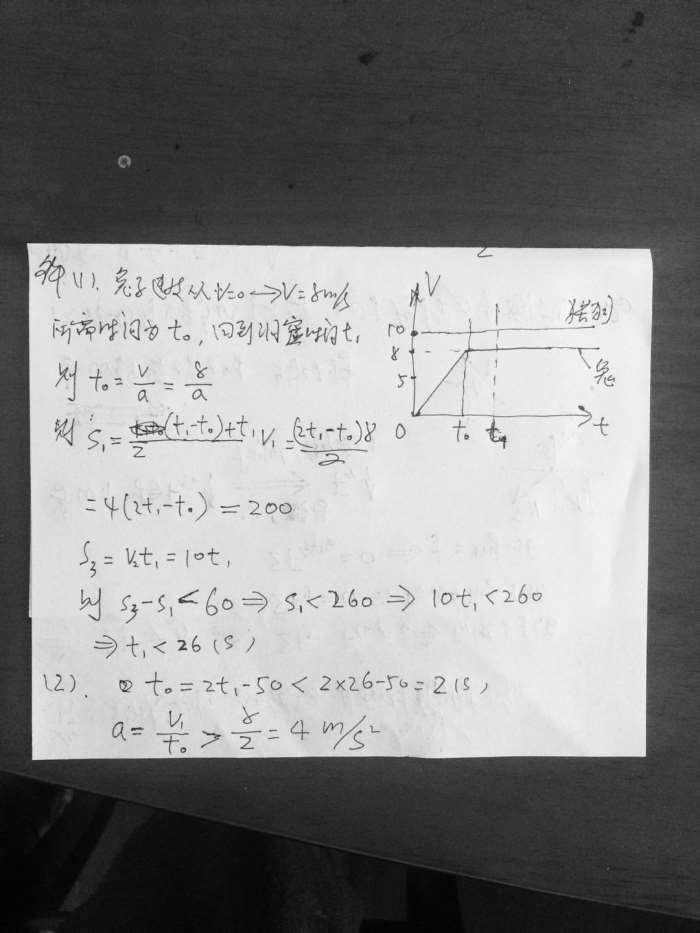 解(1). 兔子速度从V=0→V=8m/s
所需时间为t₀, 回到洞窟时间t₁
则 t₀ = V/a = 8/a
则 S₁ = (t₁-t₀)+t₁/2 V₁ = (2t₁-t₀)8/2
= 4(2t₁-t₀) = 200
S₃ = V₂t₁ = 10t₁
则 S₃-S₁ < 60 ⇒ S₁ < 260 ⇒ 10t₁ < 260
⇒ t₁ < 26 (s)
(2). t₀ = 2t₁-50 < 2×26-50 = 2(s)
a = V₁/t₀ > 8/2 = 4 m/s²
V
10
猎狗
8
兔
5
0
t₀
t₁
t